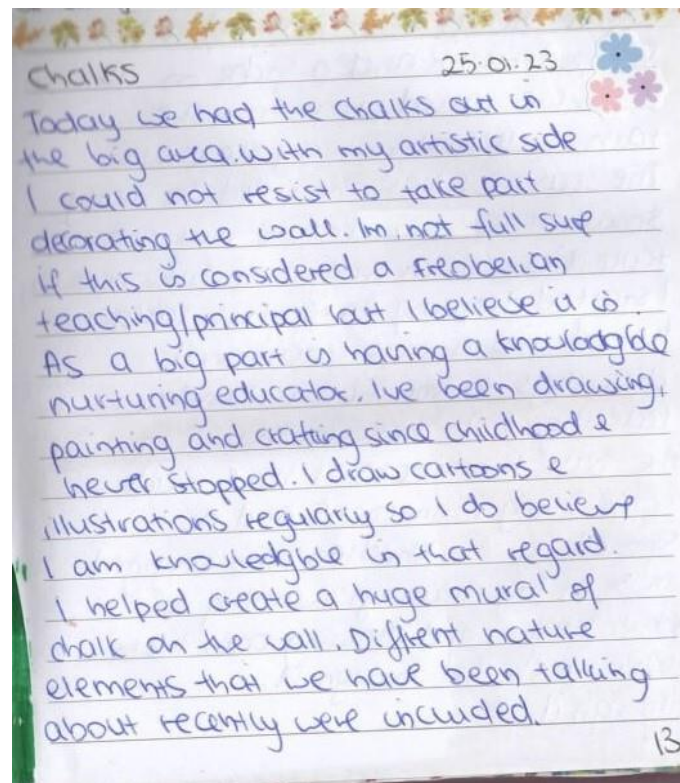 Chalks 25.01.23
Today we had the chalks out in
the big area. with my artistic side
I could not resist to take part
decorating the wall. Im not full sure
if this is considered a freobelian
teaching/principal but I believe it is.
As a big part is having a knowladgble
nurturing educator. Ive been drawing,
painting and crafting since childhood &
never stopped. I draw cartoons &
illustrations regularly so I do believe
I am knowledgble in that regard.
I helped create a huge mural of
chalk on the wall. Diffrent nature
elements that we have been talking
about recently were included.
13